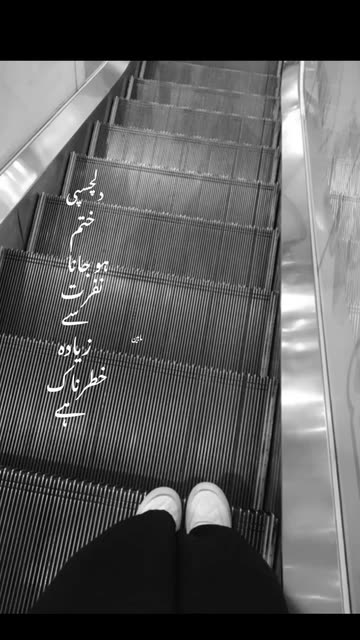 دلچسپی
ختم
ہو جانا
نفرت
سے
زیادہ
خطرناک
ہے
ماہین